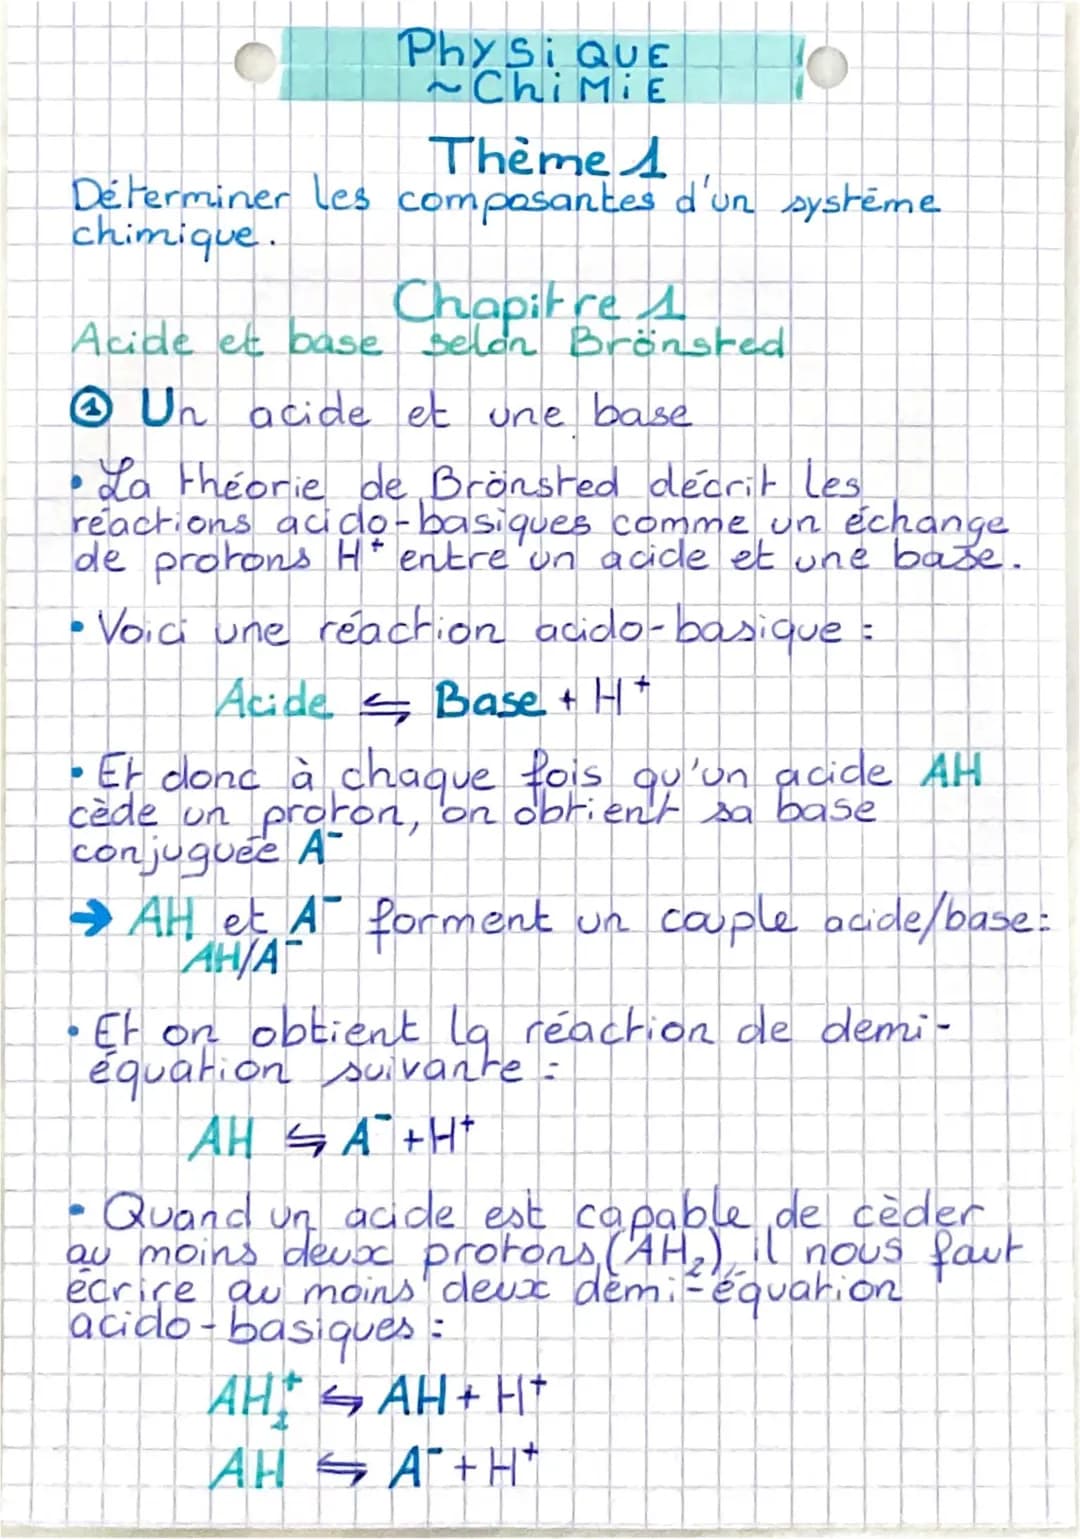 PhysiQUE
~ChiMiE
Thème 1
Déterminer les composantes d'un système
chimique.
Chapitre 1
Acide et base selon Brönsted
① Un acide et une base
• La théorie de Brönsted décrit les
réactions acido-basiques comme un échange
de protons H⁺ entre un acide et une base.
• Voici une réaction acido-basique :
Acide ⇆ Base + H⁺
• Et donc à chaque fois qu'un acide AH
cède un proton, on obtient sa base
conjuguée A⁻
→ AH et A⁻ forment un couple acide/base :
AH/A⁻
• Et on obtient la réaction de demi-
équation suivante :
AH ⇆ A⁻ + H⁺
• Quand un acide est capable de cèder
au moins deux protons (AH₂), il nous faut
écrire au moins deux demi-équation
acido-basiques :
AH₂⁺ ⇆ AH + H⁺
AH ⇆ A⁻ + H⁺